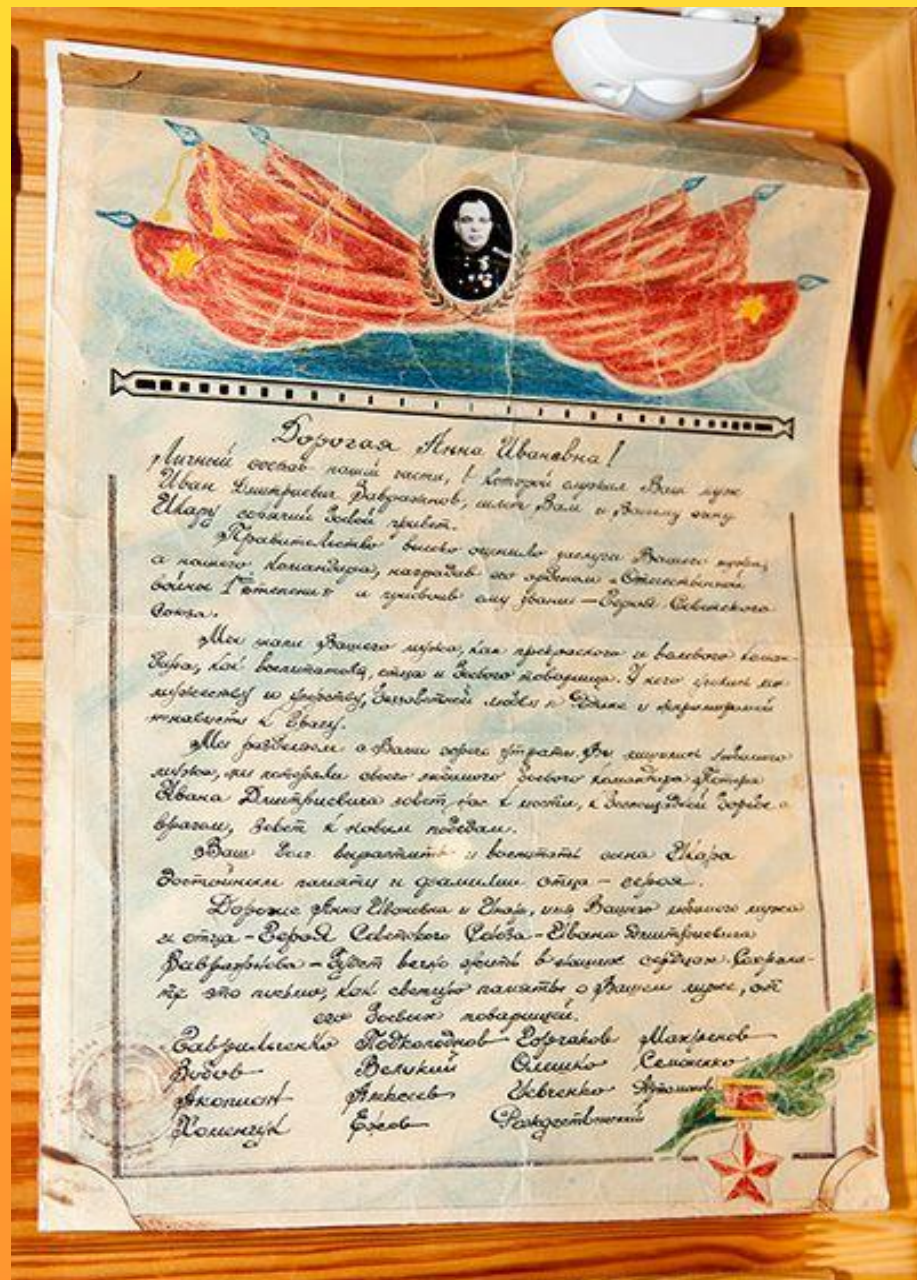 Дорогая Анна Ивановна!
Личный состав нашей части, в которой служил Ваш муж
Иван Дмитриевич Завражнов, шлет Вам и Вашему сыну
Икару горячий боевой привет.
Правительство высоко оценило заслуги Вашего мужа,
а нашего командира, наградив его орденом „Отечественной
войны I степени" и присвоив ему звание — Герой Советского
Союза.
Мы знали Вашего мужа, как прекрасного и волевого коман-
дира, как воспитателя, отца и боевого товарища. У него учились мы
мужеству и упорству, беззаветной любви к Родине и непримиримой
ненависти к врагу.
Мы разделяем с Вами горечь утраты. Вы лишились любимого
мужа, мы потеряли своего любимого боевого командира. Потеря
Ивана Дмитриевича зовет нас к мести, к беспощадной борьбе с
врагом, зовет к новым победам.
Ваш долг вырастить и воспитать сына Икара
достойным памяти и фамилии отца — героя.
Дорогие Анна Ивановна и Икар, имя Вашего любимого мужа
и отца — Героя Советского Союза — Ивана Дмитриевича
Завражнова — будет вечно жить в наших сердцах. Сохрани-
те это письмо, как светлую память о Вашем муже, от
его боевых товарищей.
Гаврильченко Подколоднов Горчаков
Зубов Великий Олешко Семененко
Акопиан Алексеев Шевченко
Хоменчук Ежов Рождественский